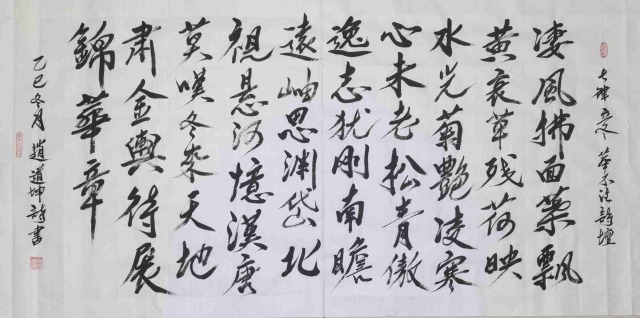 七律 立冬 詩壇
淒風拂面葉飄
黃衰草殘荷映
水光菊艷凌寒
心未老松青傲
逸志猶剛南瞻
遠岫思淵岱北
視懸河憶漢唐
莫嘆冬來天地
肅金輿待展
錦華章
乙巳冬月 趙道坤詩書